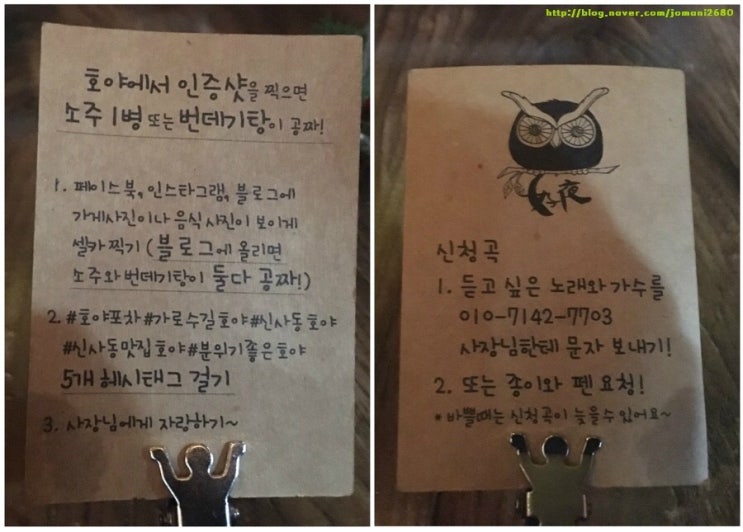 호야에서 인증샷을 찍으면
소주 1병 또는 번데기탕이 공짜!
1. 페이스북, 인스타그램, 블로그에
가게사진이나 음식 사진이 보이게
셀카 찍기 (블로그에 올리면
소주와 번데기탕이 둘다 공짜!)
2. #호야포차 #가로수길호야 #신사동호야
#신사동맛집호야 #분위기좋은호야
5개 해시태그 걸기
3. 사장님에게 자랑하기~
http://blog.naver.com/jomani2680
好夜
신청곡
1. 듣고 싶은 노래와 가수를
010-7142-7703
사장님한테 문자 보내기!
2. 또는 종이와 펜 요청!
* 바쁠때는 신청곡이 늦을수 있어요~